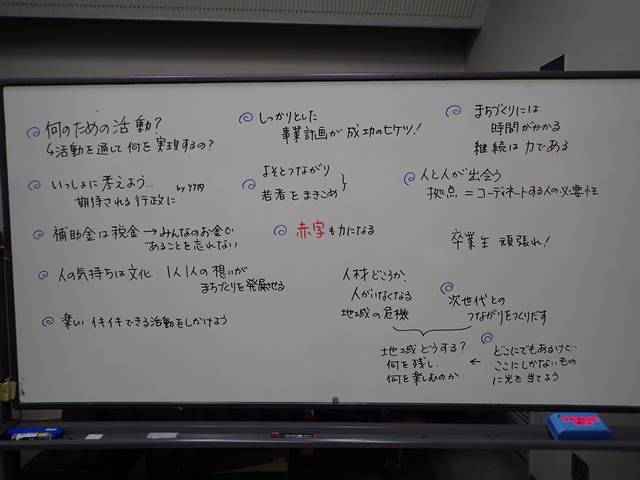 何のための活動?
↳活動を通して何を実現するの?
いっしょに考えよう…
期待される行政に
補助金は税金→みんなのお金で
あることを忘れない
人の気持ちは文化・1人1人の想いが
まちづくりを発展せる
楽しいイキイキできる活動をしかけよう
しっかりとした
事業計画が成功のヒケツ!
よそとつながり
若者をまきこめ
赤字も力になる
まちづくりには
時間がかかる
継続は力である
人と人が出会う
拠点=コーディネートする人の必要性
卒業生 頑張れ!
人材どころか、
人がいなくなる
地域の危機
次世代との
つながりをつくりだす
地域どうする?
何を残し、
何を楽しむのか
←
どこにでもあるけど、
ここにしかないもの
に光を当てよう